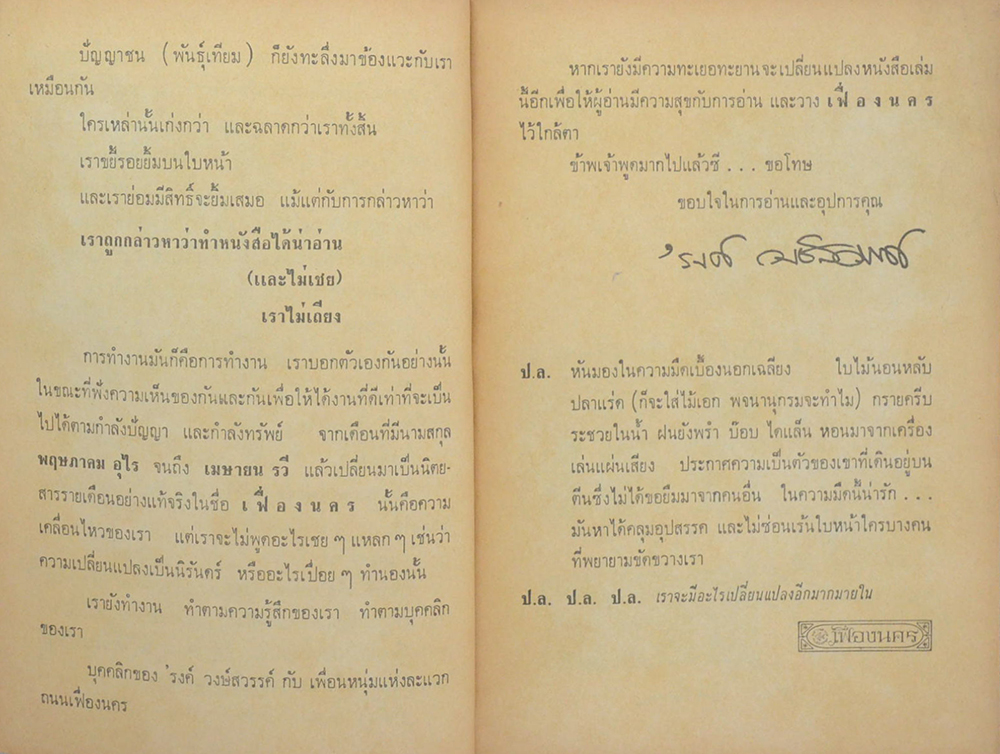 ปัญญาชน (พันธุ์เทียม) ก็ยังทะลึ่งมาข้องแวะกับเรา
เหมือนกัน
ใครเหล่านั้นเก่งกว่า และฉลาดกว่าเราทั้งสิ้น
เราขยี้รอยยิ้มบนใบหน้า
และเราย่อมมีสิทธิ์จะยิ้มเสมอ แม้แต่กับการกล่าวหาว่า
เราถูกกล่าวหาว่าทำหนังสือได้น่าอ่าน
(และไม่เชย)
เราไม่เถียง
การทำงานมันก็คือการทำงาน เราบอกตัวเองกันอย่างนั้น
ในขณะที่ฟังความเห็นของกันและกันเพื่อให้ได้งานที่ดีเท่าที่จะเป็น
ไปได้ตามกำลังปัญญา และกำลังทรัพย์ จากเดือนที่มีนามสกุล
พฤษภาคม อุไร จนถึง เมษายน รวี แล้วเปลี่ยนมาเป็นนิตย-
สารรายเดือนอย่างแท้จริงในชื่อ เ ฟื่ อ ง น ค ร นั้นคือความ
เคลื่อนไหวของเรา แต่เราจะไม่พูดอะไรเชย ๆ แหลก ๆ เช่นว่า
ความเปลี่ยนแปลงเป็นนิรันดร์ หรืออะไรเปื่อย ๆ ทำนองนั้น
เรายังทำงาน ทำตามความรู้สึกของเรา ทำตามบุคคลิก
ของเรา
บุคคลิกของ 'รงค์ วงษ์สวรรค์ กับ เพื่อนหนุ่มแห่งละแวก
ถนนเฟื่องนคร
หากเรายังมีความทะเยอทะยานจะเปลี่ยนแปลงหนังสือเล่ม
นี้อีกเพื่อให้ผู้อ่านมีความสุขกับการอ่าน และวาง เ ฟื่ อ ง น ค ร
ไว้ใกล้ตา
ข้าพเจ้าพูดมากไปแล้วซี . . . ขอโทษ
ขอบใจในการอ่านและอุปการคุณ
'รงค์ วงษ์สวรรค์
ป.ล. หันมองในความมืดเบื้องนอกเฉลียง ใบไม้นอนหลับ
ปลาแร่ด (ก็จะใส่ไม้เอก พจนานุกรมจะทำไม) กรายครีบ
ระชวยในน้ำ ฝนยังพรำ บ๊อบ ไดแล็น หอนมาจากเครื่อง
เล่นแผ่นเสียง ประกาศความเป็นตัวของเขาที่เดินอยู่บน
ตีนซึ่งไม่ได้ขอยืมมาจากคนอื่น ในความมืดนี้น่ารัก . . .
มันหาได้คลุมอุปสรรค และไม่ซ่อนเร้นใบหน้าใครบางคน
ที่พยายามขัดขวางเรา
ป.ล. ป.ล. ป.ล. เราจะมีอะไรเปลี่ยนแปลงอีกมากมายใน
เฟื่องนคร